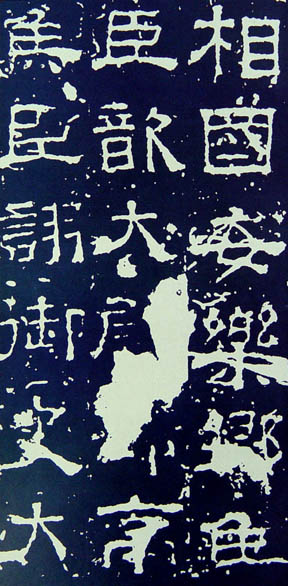 相國安樂鄉侯
臣歆太尉亭
侯臣詡御史大